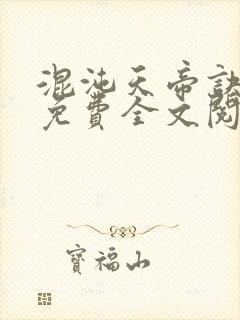 混沌天帝訣
免費全文閱
寶福山